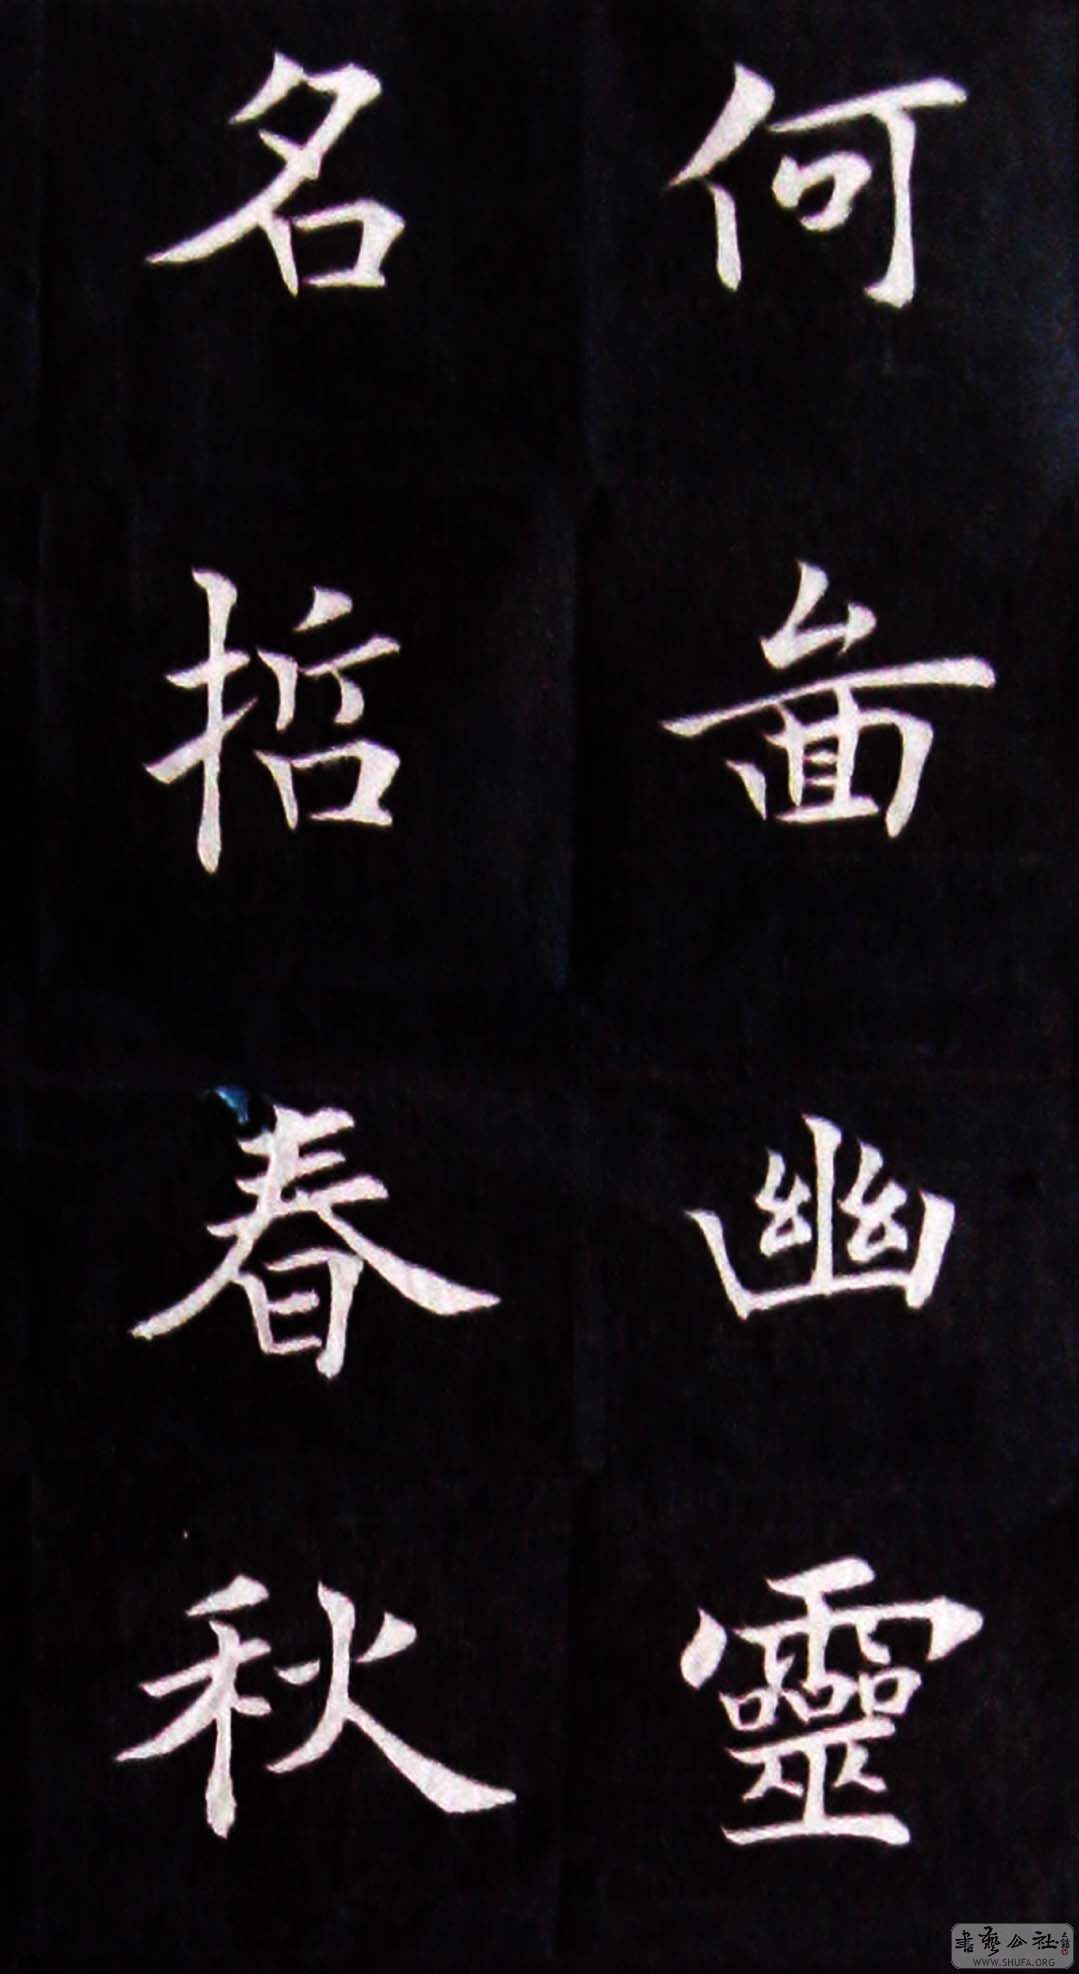 何啚幽靈
名哲春秋
書藝公社
WWW.SHUFA.ORG